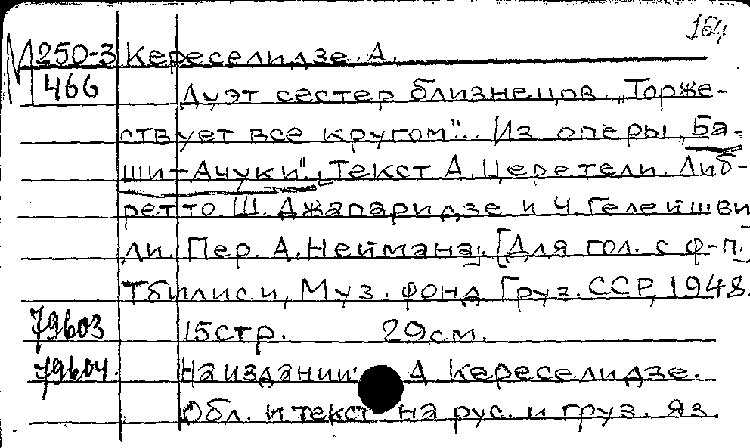 164
М 250-3 Кереселидзе А.
466 Дуэт сестер близнецов „Торже-
ствует все кругом". Из оперы „Ба-
ши-Ачуки". Текст А. Церетели. Либ-
ретто Ш. Джапаридзе и Ч. Гелейшви
ли. Пер. А. Неймана. [Для гол. с ф-п.]
Тбилиси, Муз. фонд Груз. ССР, 1948.
79603 15стр. 29см.
79604. На издании: А Кереселидзе.
Обл. и текст на рус. и груз. яз.